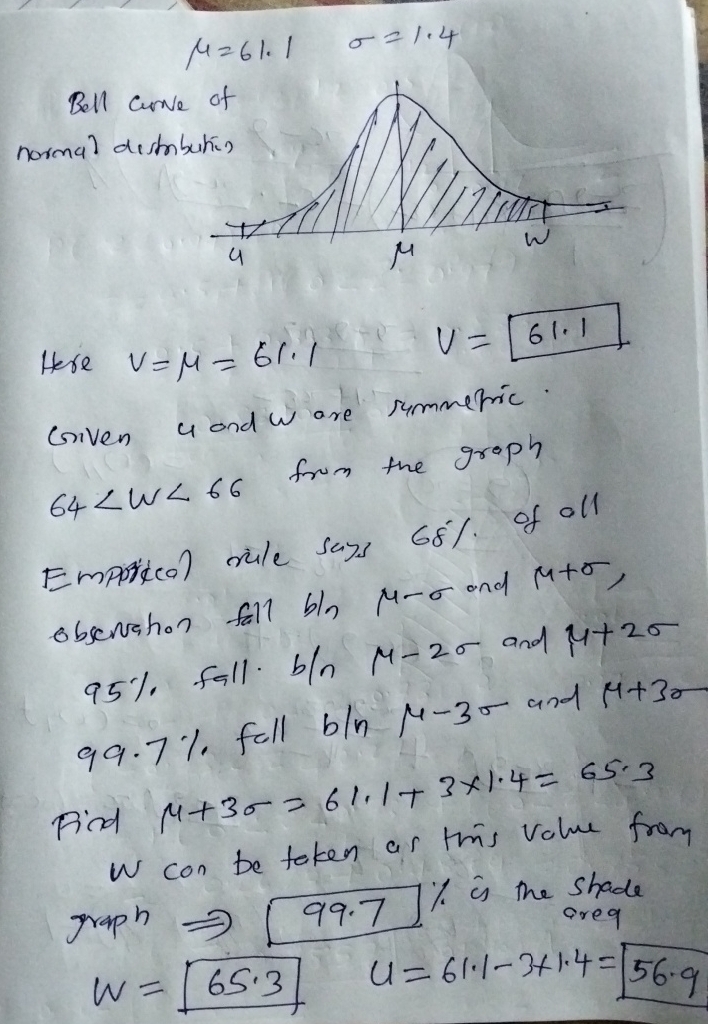 μ=61.1 σ=1.4
Bell curve of
normal distribution
u μ w
Here V=μ=61.1 V= 61.1
Given u and w are symmetric.
64<W<66 from the graph
Emppirical rule says 68% of all
observation fall b/n μ-σ and μ+σ,
95% fall. b/n μ-2σ and μ+2σ
99.7% fall b/n μ-3σ and μ+3σ
Find μ+3σ = 61.1+3×1.4= 65.3
W can be taken as this value from
graph ⇒ 99.7 % is the shade
area
W= 65.3 U=61.1-3×1.4= 56.9